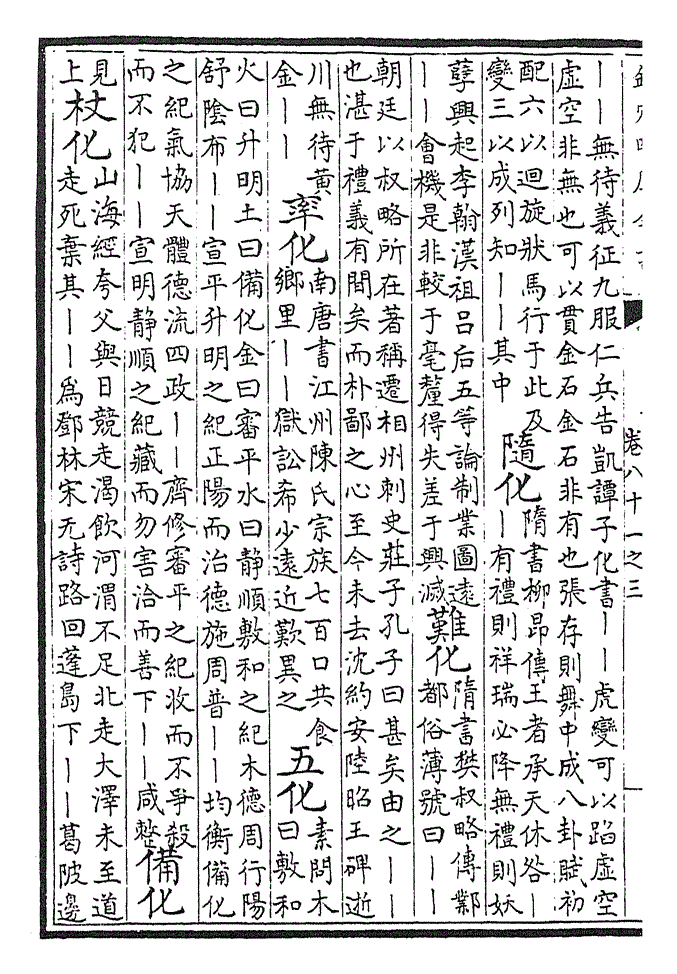 卷八十一之三
——無待義征九服仁兵告凱譚子化書——虎變可以蹈虛空
虛空非無也可以貫金石金石非有也張存則舞中成八卦賦初
配六以迴旋狀馬行于此及
變三以成列知——其中
隨化
隋書柳昂傳王者承天休咎—
—有禮則祥瑞必降無禮則妖
孽興起李翰漢祖呂后五等論制業圖遠
——會機是非較于毫釐得失差于興滅
難化
隋書樊叔略傳鄴
都俗薄號曰——
朝廷以叔略所在著稱遷相州刺史莊子孔子曰甚矣由之——
也湛于禮義有間矣而朴鄙之心至今未去沈約安陸昭王碑逝
川無待黃
金——
率化
南唐書江州陳氏宗族七百口共食
鄉里——獄訟希少遠近歎異之
五化
素問木
曰敷和
火曰升明土曰備化金曰審平水曰静順敷和之紀木德周行陽
舒陰布——宣平升明之紀正陽而治德施周普——均衡備化
之紀氣協天體德流四政——齊修審平之紀收而不爭殺
而不犯——宣明静順之紀藏而勿害治而善下——咸整
備化
見
上
杖化
山海經夸父與日競走渴飲河渭不足北走大澤未至道
走死棄其——為鄧林宋无詩路回蓬島下——葛陂邊